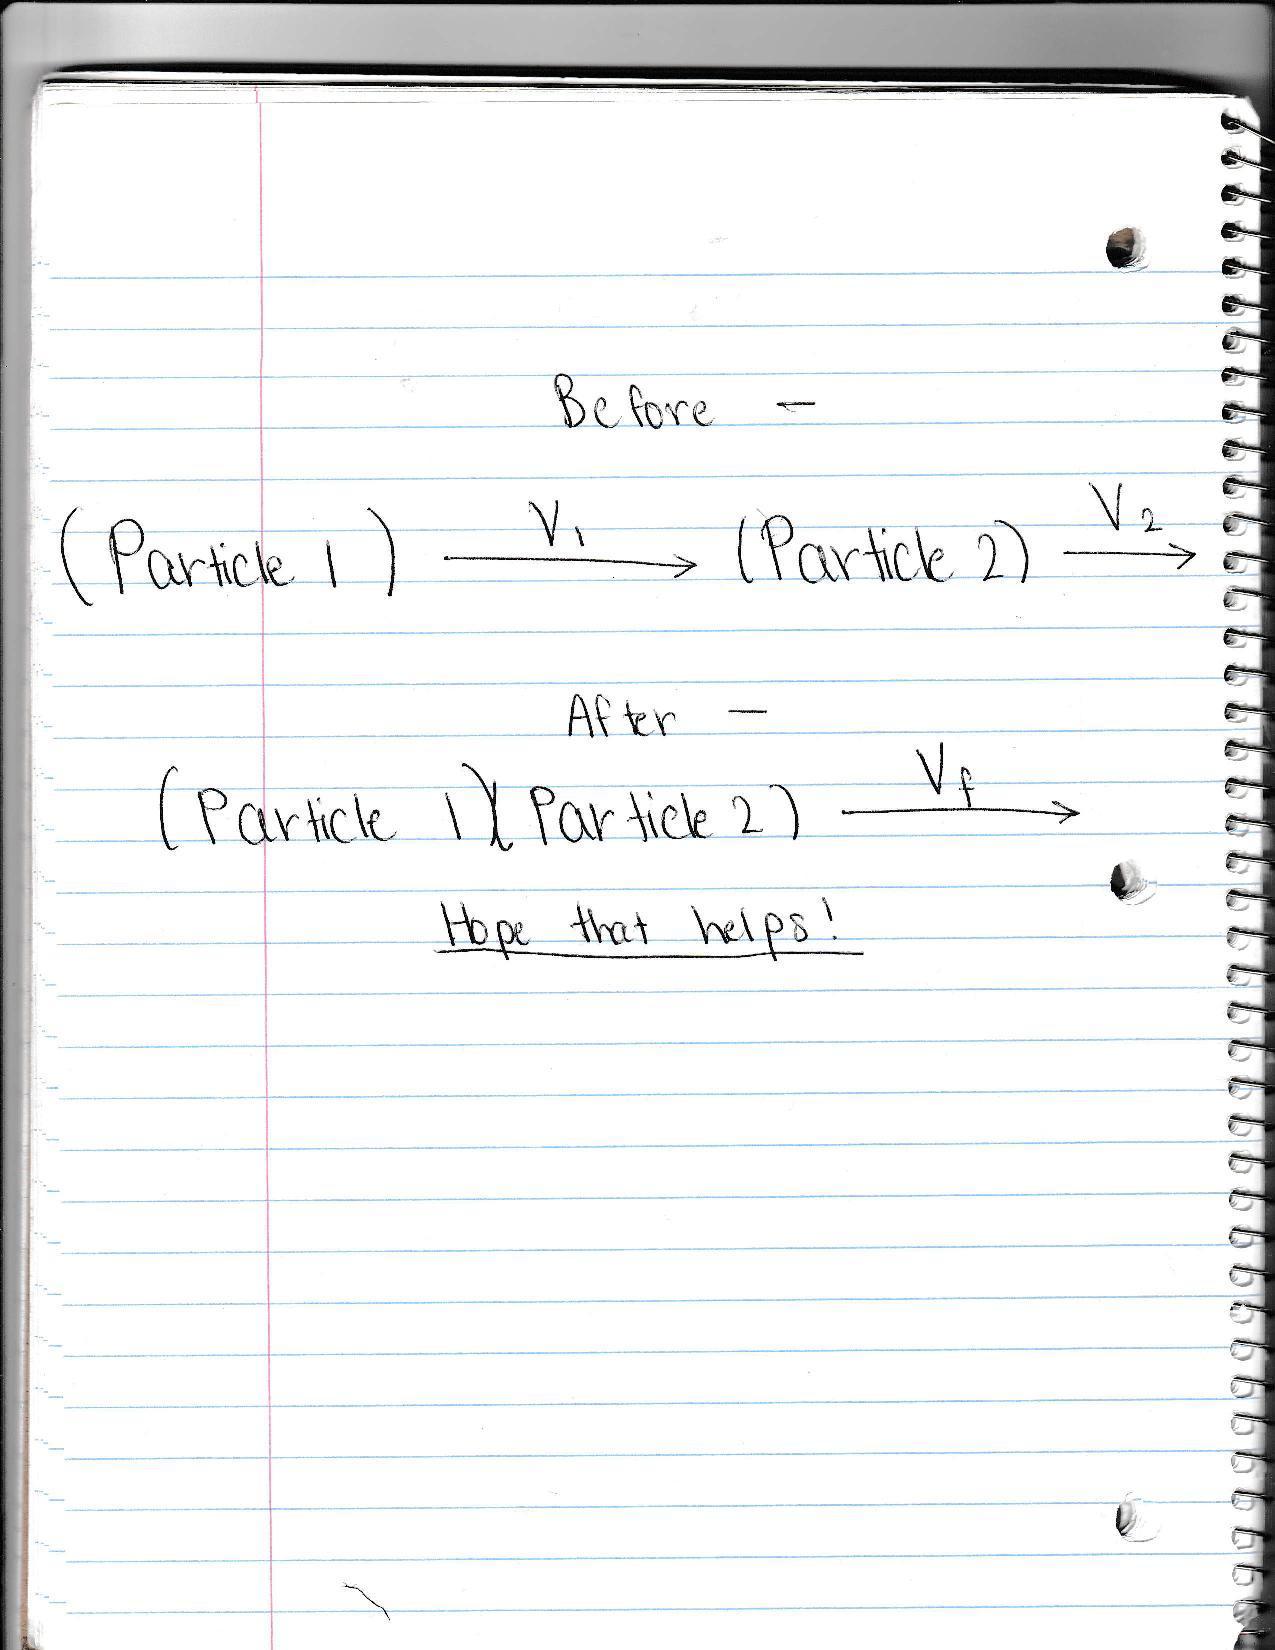 Before -
(Particle 1) V1 (Particle 2) V2
After -
(Particle 1)(Particle 2) Vf
Hope that helps!